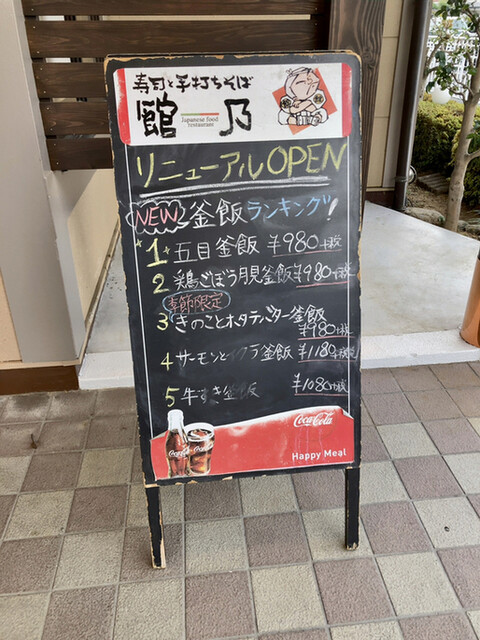 寿司と手打ちそば
館乃
Japanese food
restaurant
リニューアルOPEN
NEW 釜飯ランキング!
1 五目釜飯 ¥980+税
2 鶏ごぼう月見釜飯 ¥980+税
季節限定
3 きのことホタテバター釜飯
¥980+税
4 サーモンとイクラ釜飯 ¥1180+税
5 牛すき釜飯 ¥1080+税
Coca-Cola
Happy Meal